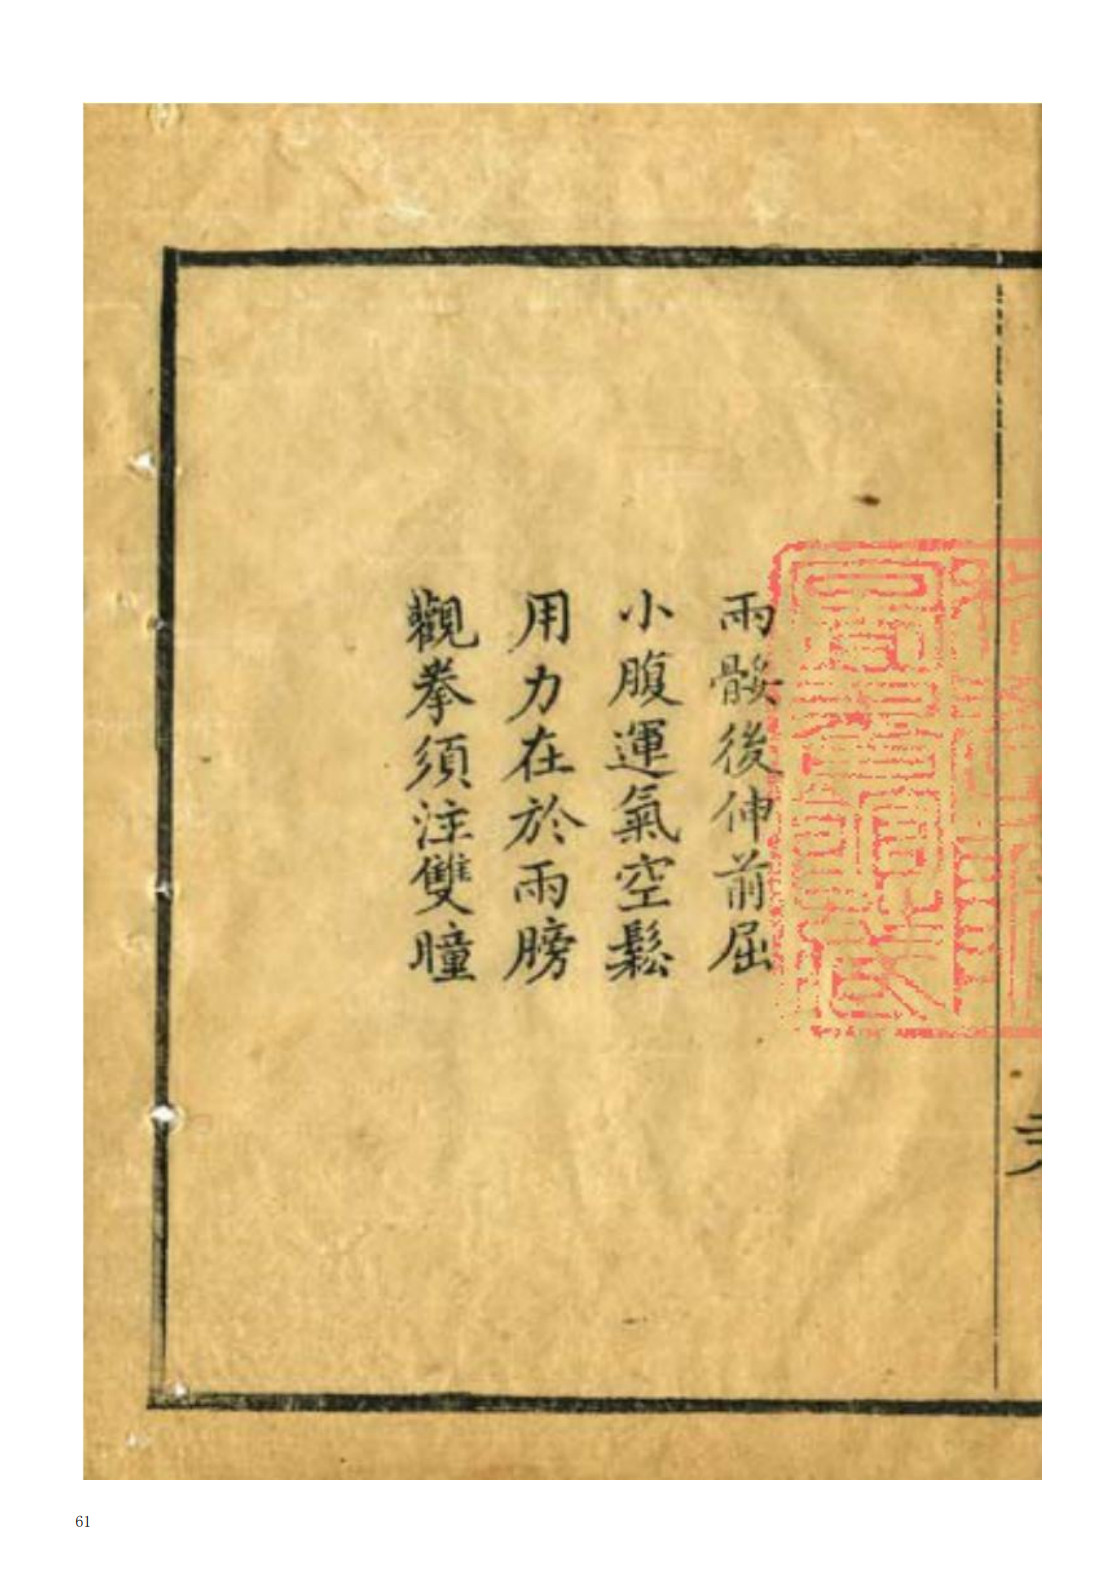 兩骸後伸前屈
小腹運氣空鬆
用力在於兩膀
觀拳須注雙瞳
61